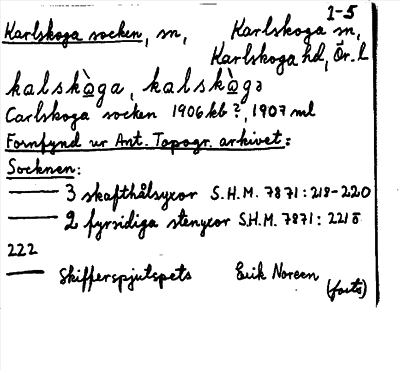 1-5
Karlskoga socken, sn, Karlskoga sn,
Karlskoga hd, Ör. l
kalskòga, kalskògə
Carlskoga socken 1906 kb?, 1907 ml
Fornfynd ur Ant. Topogr. arkivet:
Socknen:
—— 3 skafthålsyxor S.H.M. 7871: 218-220
—— 2 fyrsidiga stenyxor S.H.M. 7871: 221 o
222
—— Skifferspjutspets Erik Noreen
(forts)